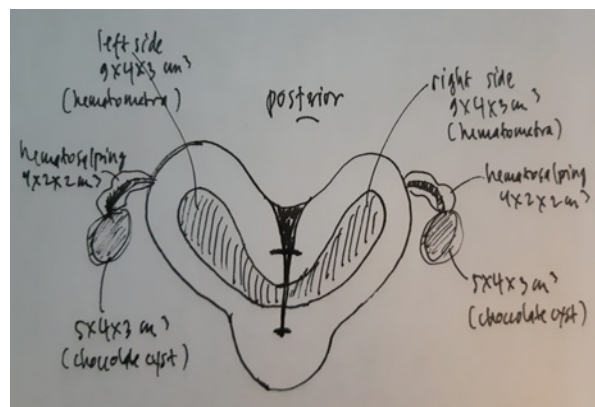 left side
9x4x3 cm³
(hematometra)
posterior
right side
9x4x3 cm³
(hematometra)
hematosalping
4x2x2 cm³
hematosalping
4x2x2 cm³
5x4x3 cm³
(chocolate cyst)
5x4x3 cm³
(chocolate cyst)